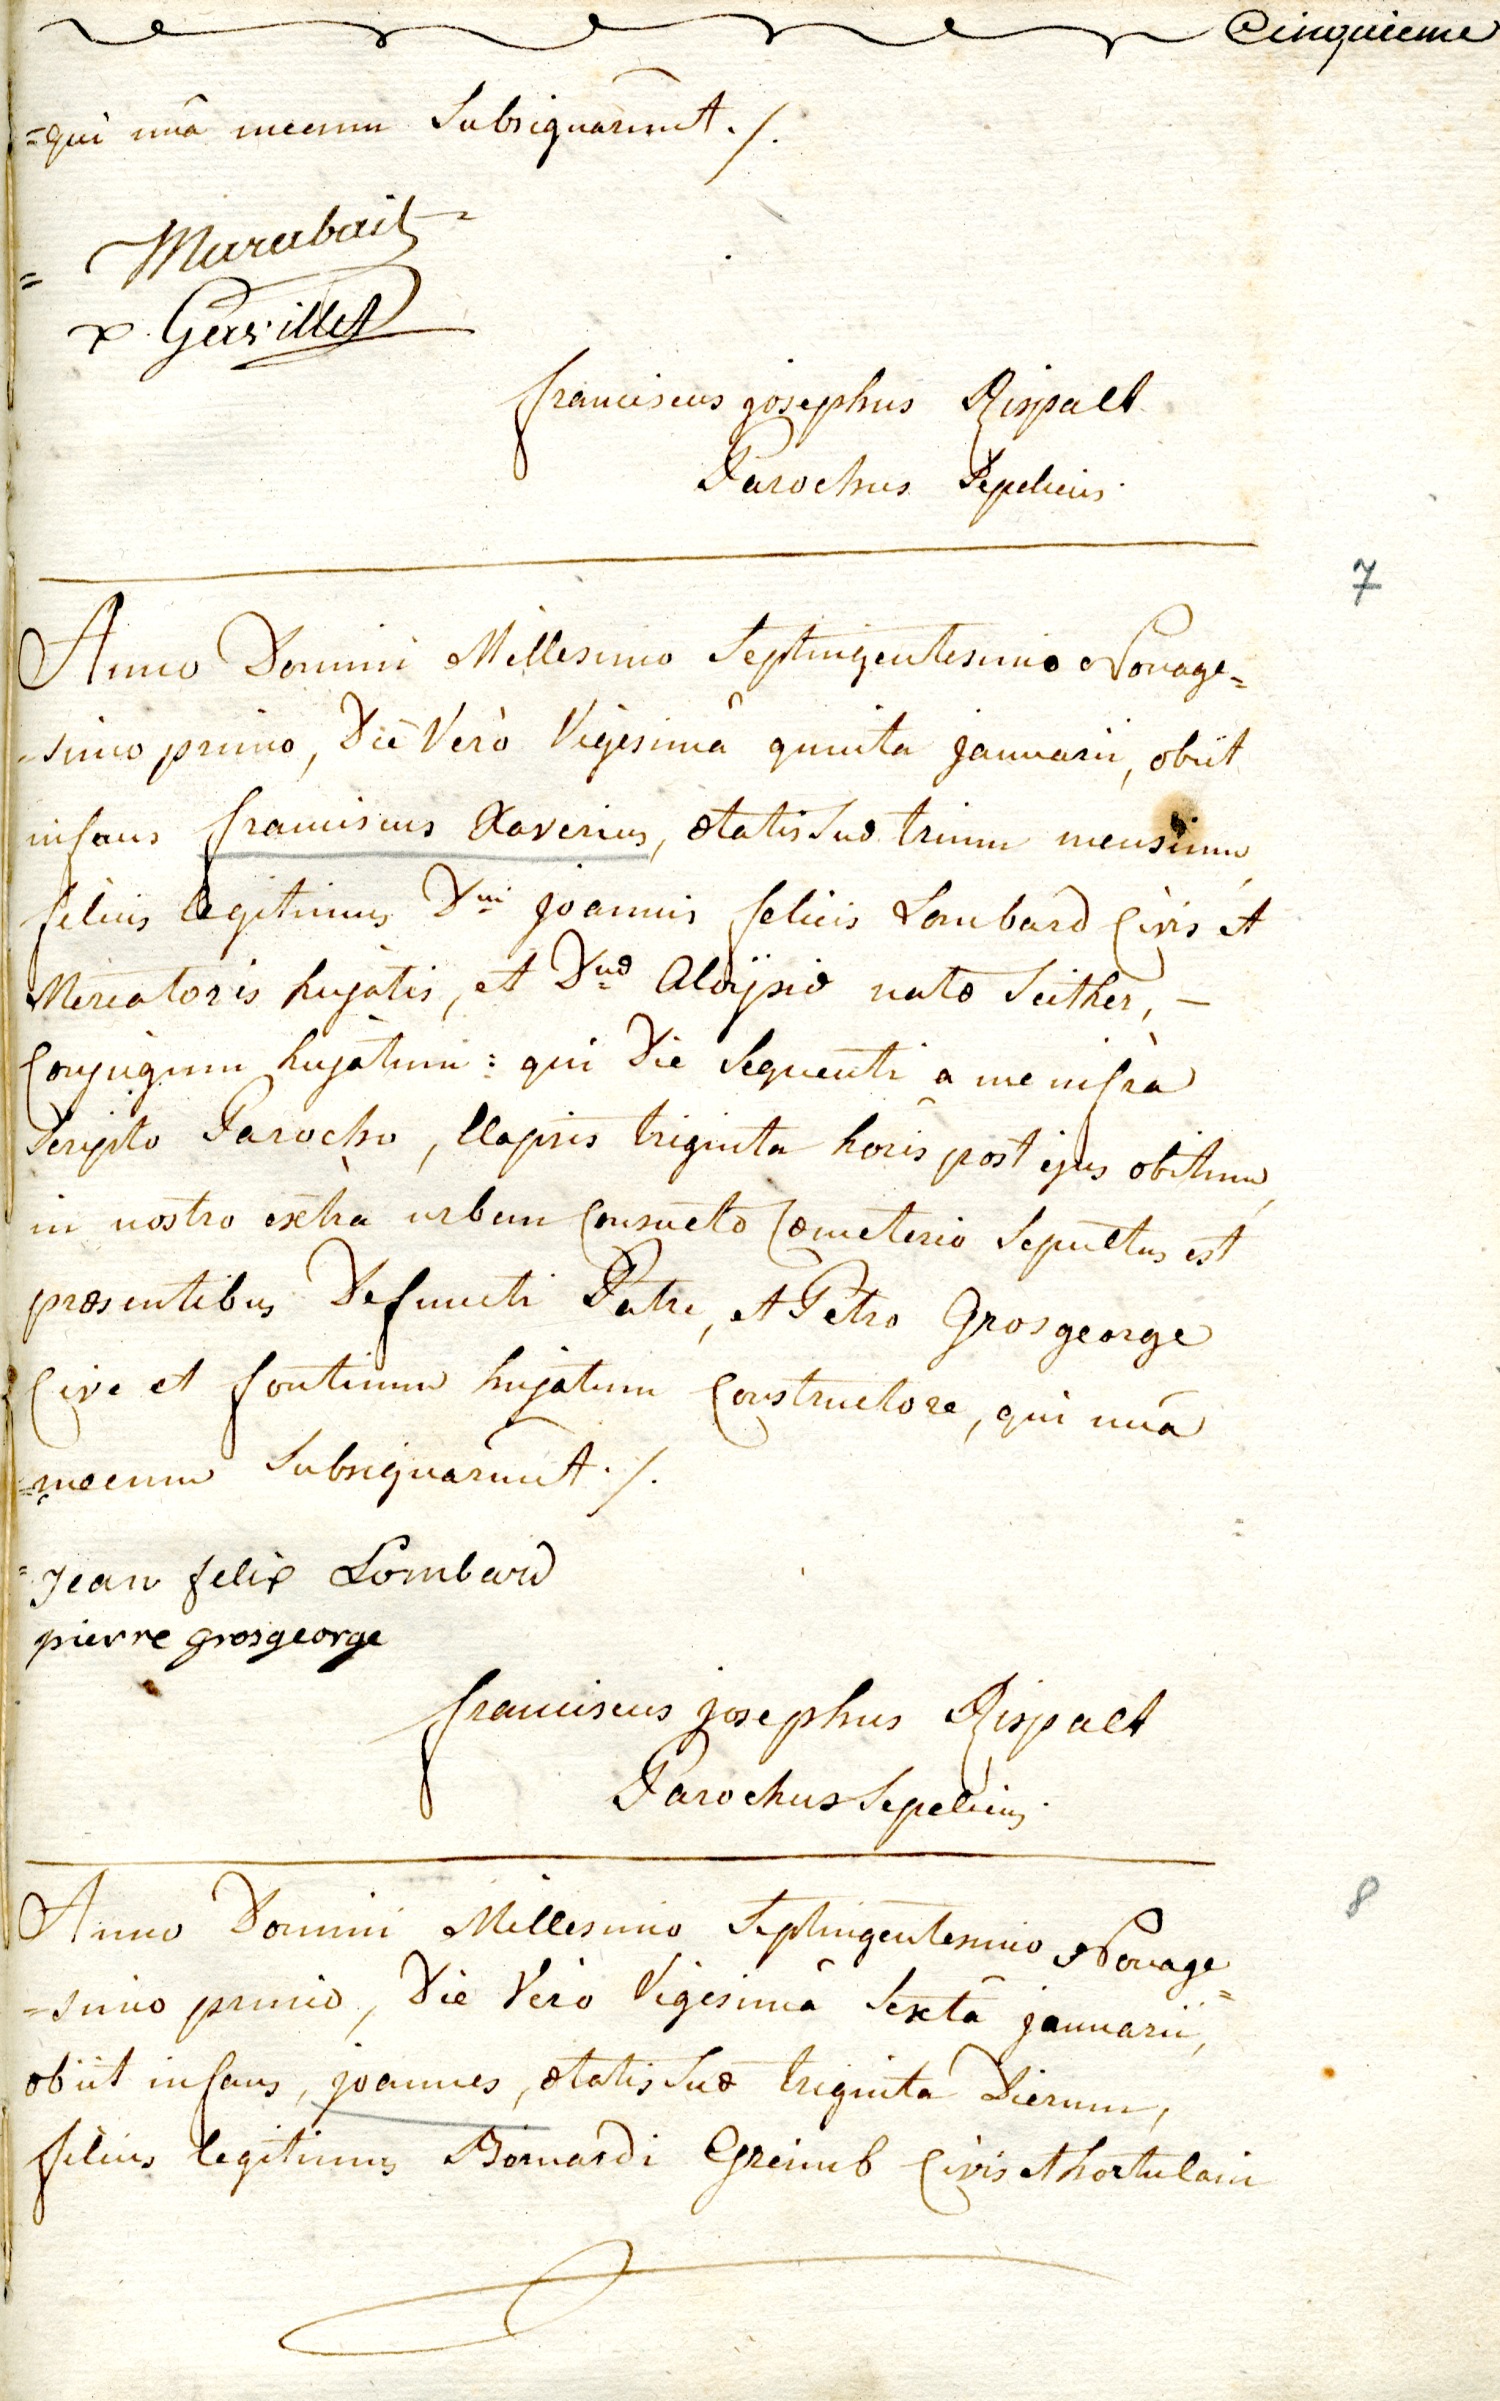 Cinquieme
=qui unâ mecum Subsignârunt ./.
Marabail
x. Gervillet
franciscus josephus Rispalt
Parochus Sepeliens.
7
Anno Domini Millesimo Septingentesimo Nonage=
=simo primo, Die Verò Vigesimâ quinta januarii, obiit
infans franciscus Xaverius, ætatis Suæ trium mensium,
filius legitimus Dni joannis felicis Lombard Civis et
Mercatoris hujatis, et Dnæ Aloÿsiæ natæ Seither, —
Conjugum hujatum : qui Die Sequenti a me infrà
Scripto Parocho, Elapsis triginta horis post ejus obitum,
in nostro extrà urbem Consueto Cœmeterio Sepultus est
præsentibus Defuncti Patre, et Petro Grosgeorge
Cive et fontium hujatum Constructore, qui unâ
=mecum Subsignârunt ./.
Jean felix Lombard
pierre grosgeorge
franciscus josephus Rispalt
Parochus Sepeliens.
8
Anno Domini Millesimo Septingentesimo Nonage=
=simo primo, Die Verò Vigesimâ Sextâ januarii,
obiit infans, joannes, ætatis Suæ triginta Dierum,
filius legitimus Bernardi Greimb Civis et hortulani